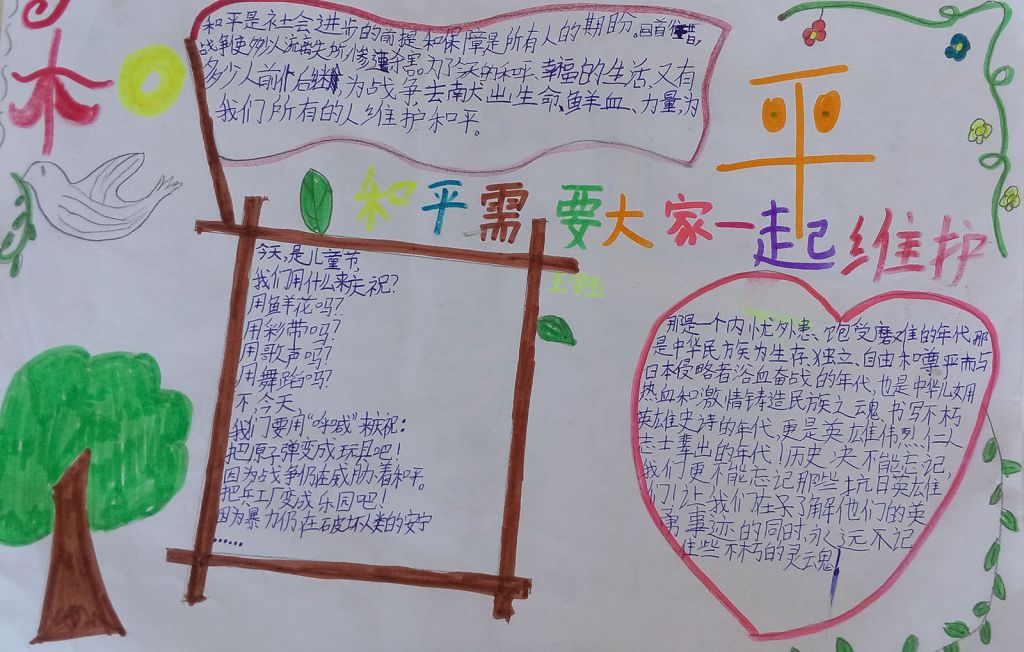 和
平
和平是社会进步的前提和保障,是所有人的期盼。回首往昔,
战争使多少人流离失所,惨遭杀害。为了今天的和平、幸福的生活、又有
多少人前仆后继,为战争去献出生命、鲜血、力量,为
我们所有的人维护和平。
和平需要大家一起维护
主题
今天,是儿童节,
我们用什么来庆祝?
用鲜花吗?
用彩带吗?
用歌声吗?
用舞蹈吗?
不,今天
我们要用“呼喊”来庆祝:
把原子弹变成玩具吧!
因为战争仍在威胁着和平。
把兵工厂变成乐园吧!
因为暴力仍在破坏人类的安宁
......
那是一个内忧外患、饱受磨难的年代,那
是中华民族为生存、独立、自由和尊严而与
日本侵略者浴血奋战的年代,也是中华儿女用
热血和激情铸造民族之魂,书写不朽
英雄史诗的年代,更是英雄伟烈、仁人
志士辈出的年代!历史,决不能忘记,
我们更不能忘记那些抗日英雄
们!让我们在了解他们的英
勇事迹的同时,永远不忘记
那些不朽的灵魂